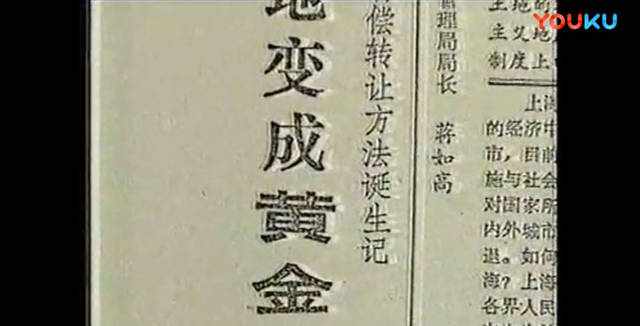 YOUKU
地变成黄金
偿转让方法诞生记
管理局局长 蒋如高
土地的
主义地
制度上
上海
的经济中
市，目前
施与社会
对国家所
内外城市
退。如何
海？上海
各界人民